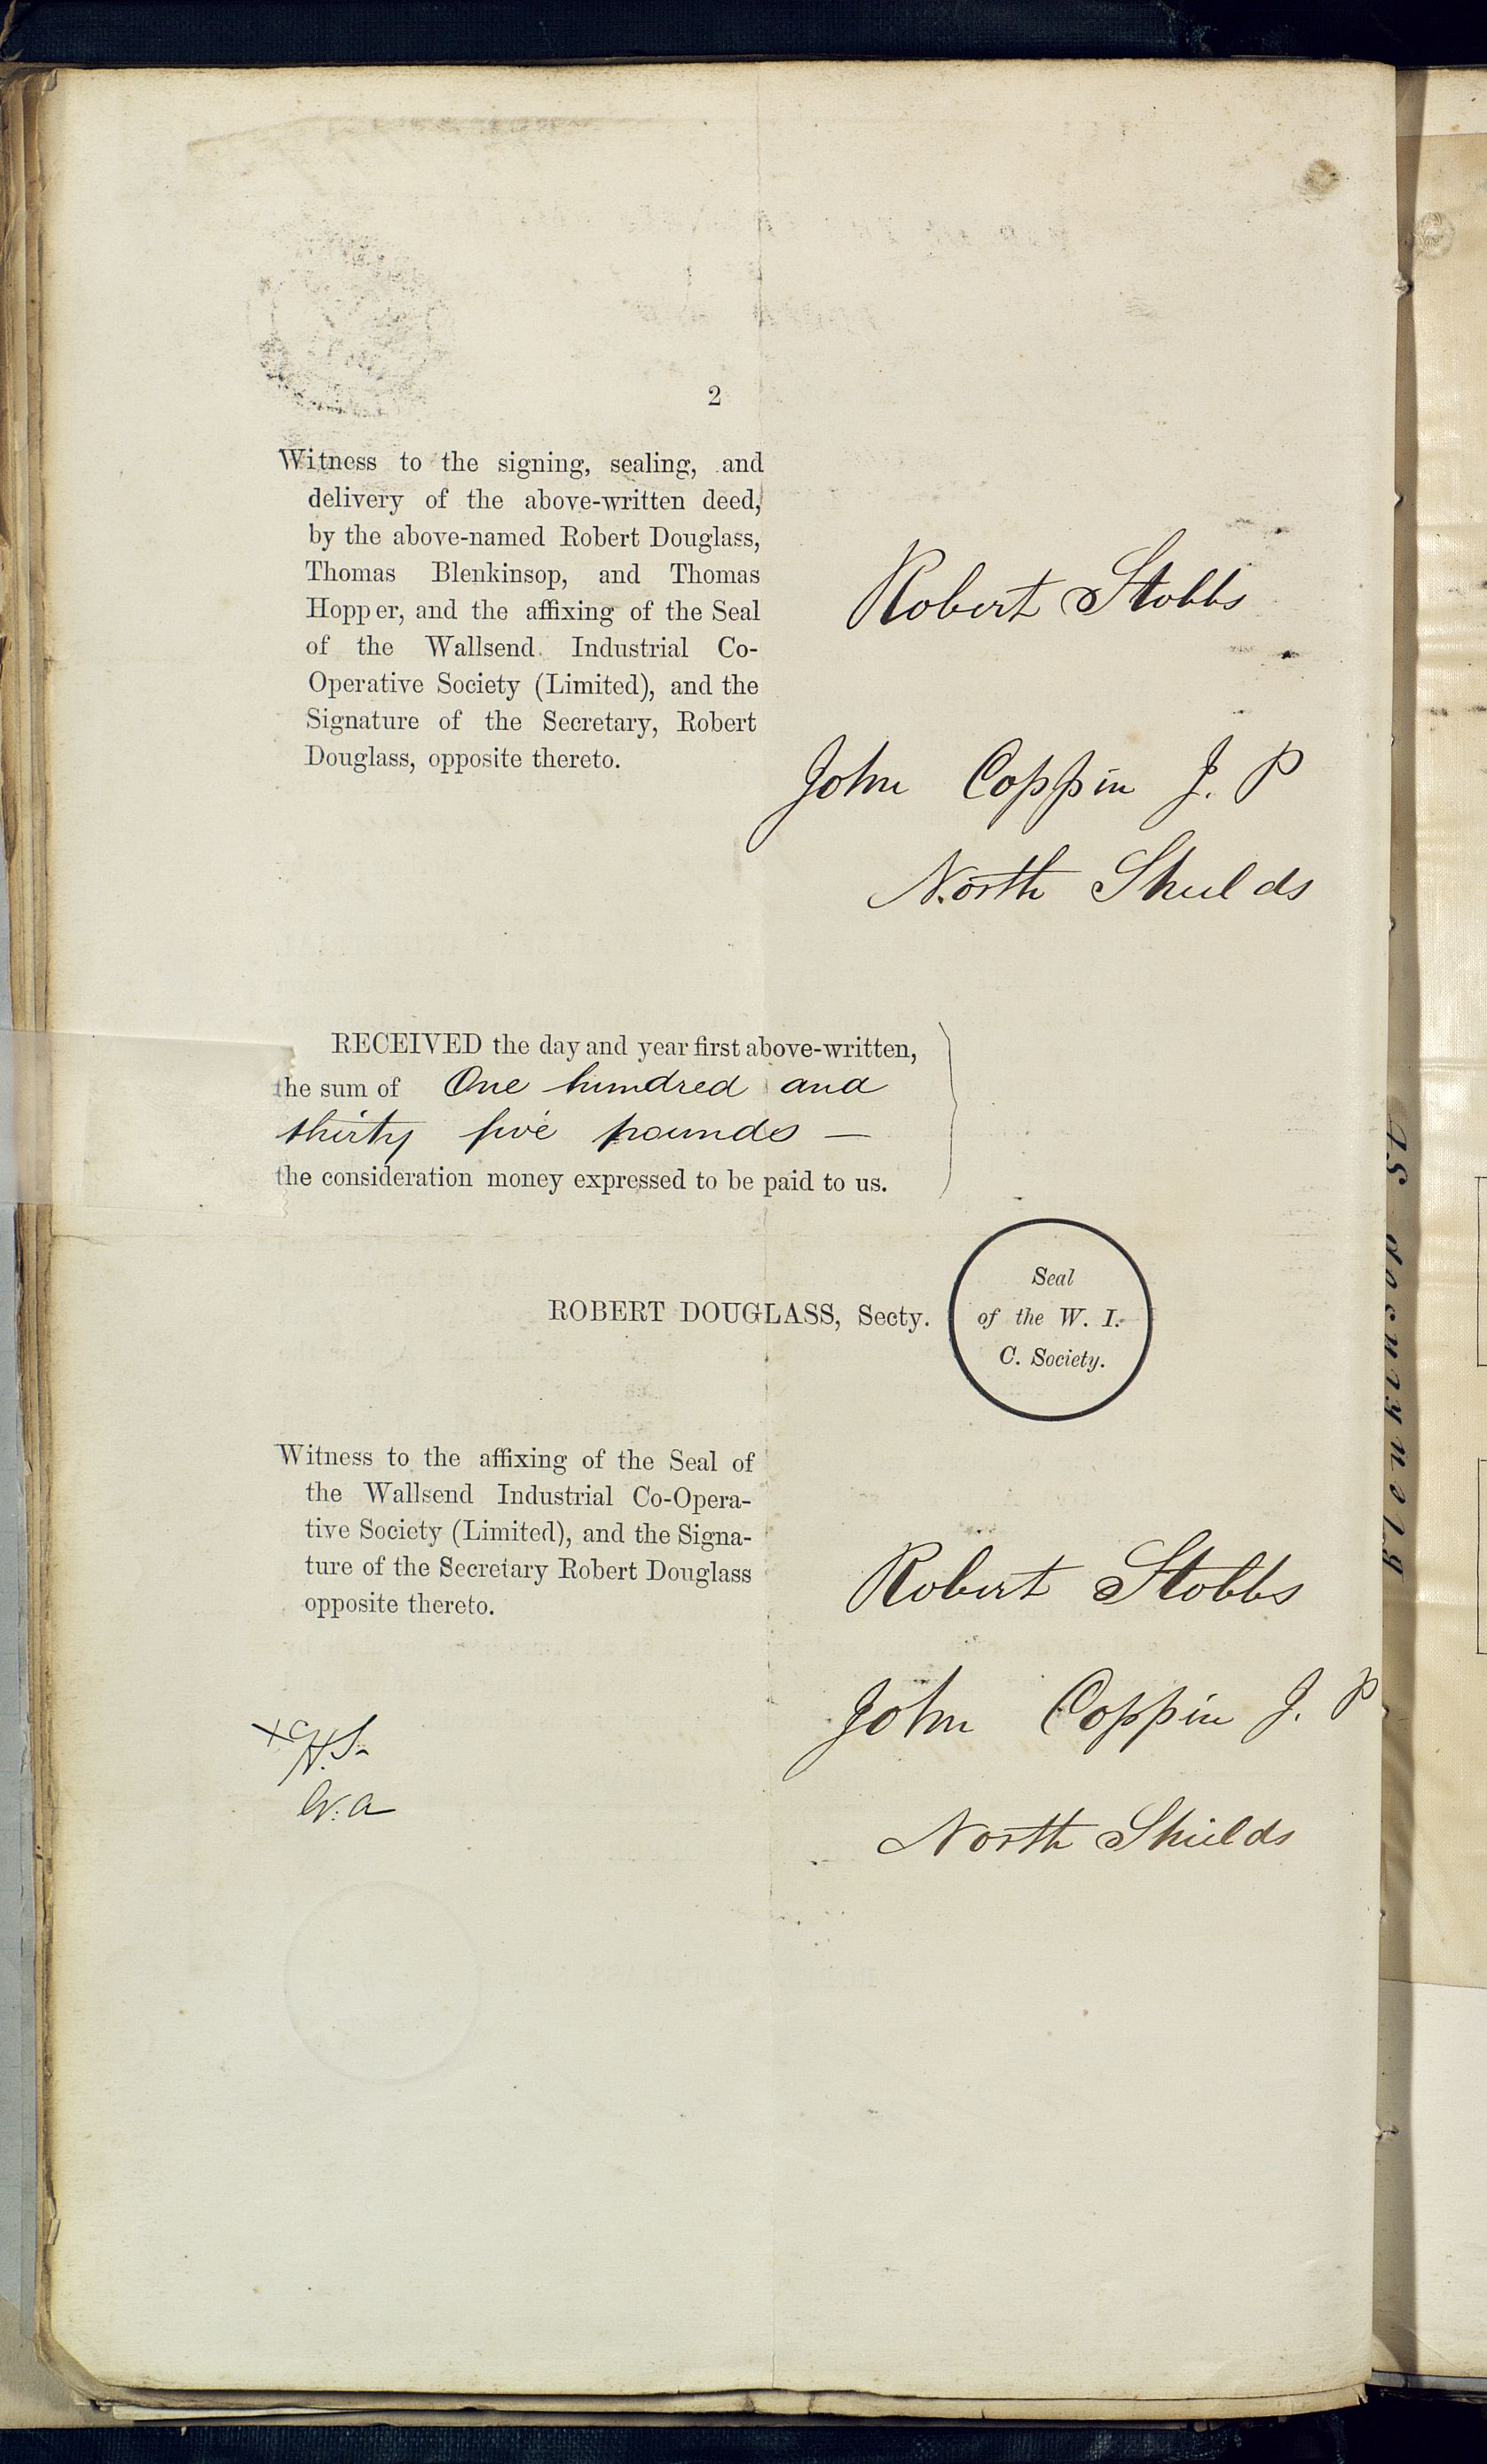 2
Witness to the signing, sealing, and
delivery of the above-written deed,
by the above-named Robert Douglass,
Thomas Blenkinsop, and Thomas
Hopper, and the affixing of the Seal
of the Wallsend Industrial Co-
Operative Society (Limited), and the
Signature of the Secretary, Robert
Douglass, opposite thereto.
Robert Stobbs
John Coppin J. P
North Shields
RECEIVED the day and year first above-written,
the sum of One hundred and
thirty five pounds —
the consideration money expressed to be paid to us.
ROBERT DOUGLASS, Secty.
Seal
of the W. I.
C. Society.
Witness to the affixing of the Seal of
the Wallsend Industrial Co-Opera-
tive Society (Limited), and the Signa-
ture of the Secretary Robert Douglass
opposite thereto.
Robert Stobbs
John Coppin J. P
North Shields
Blenkinsop St